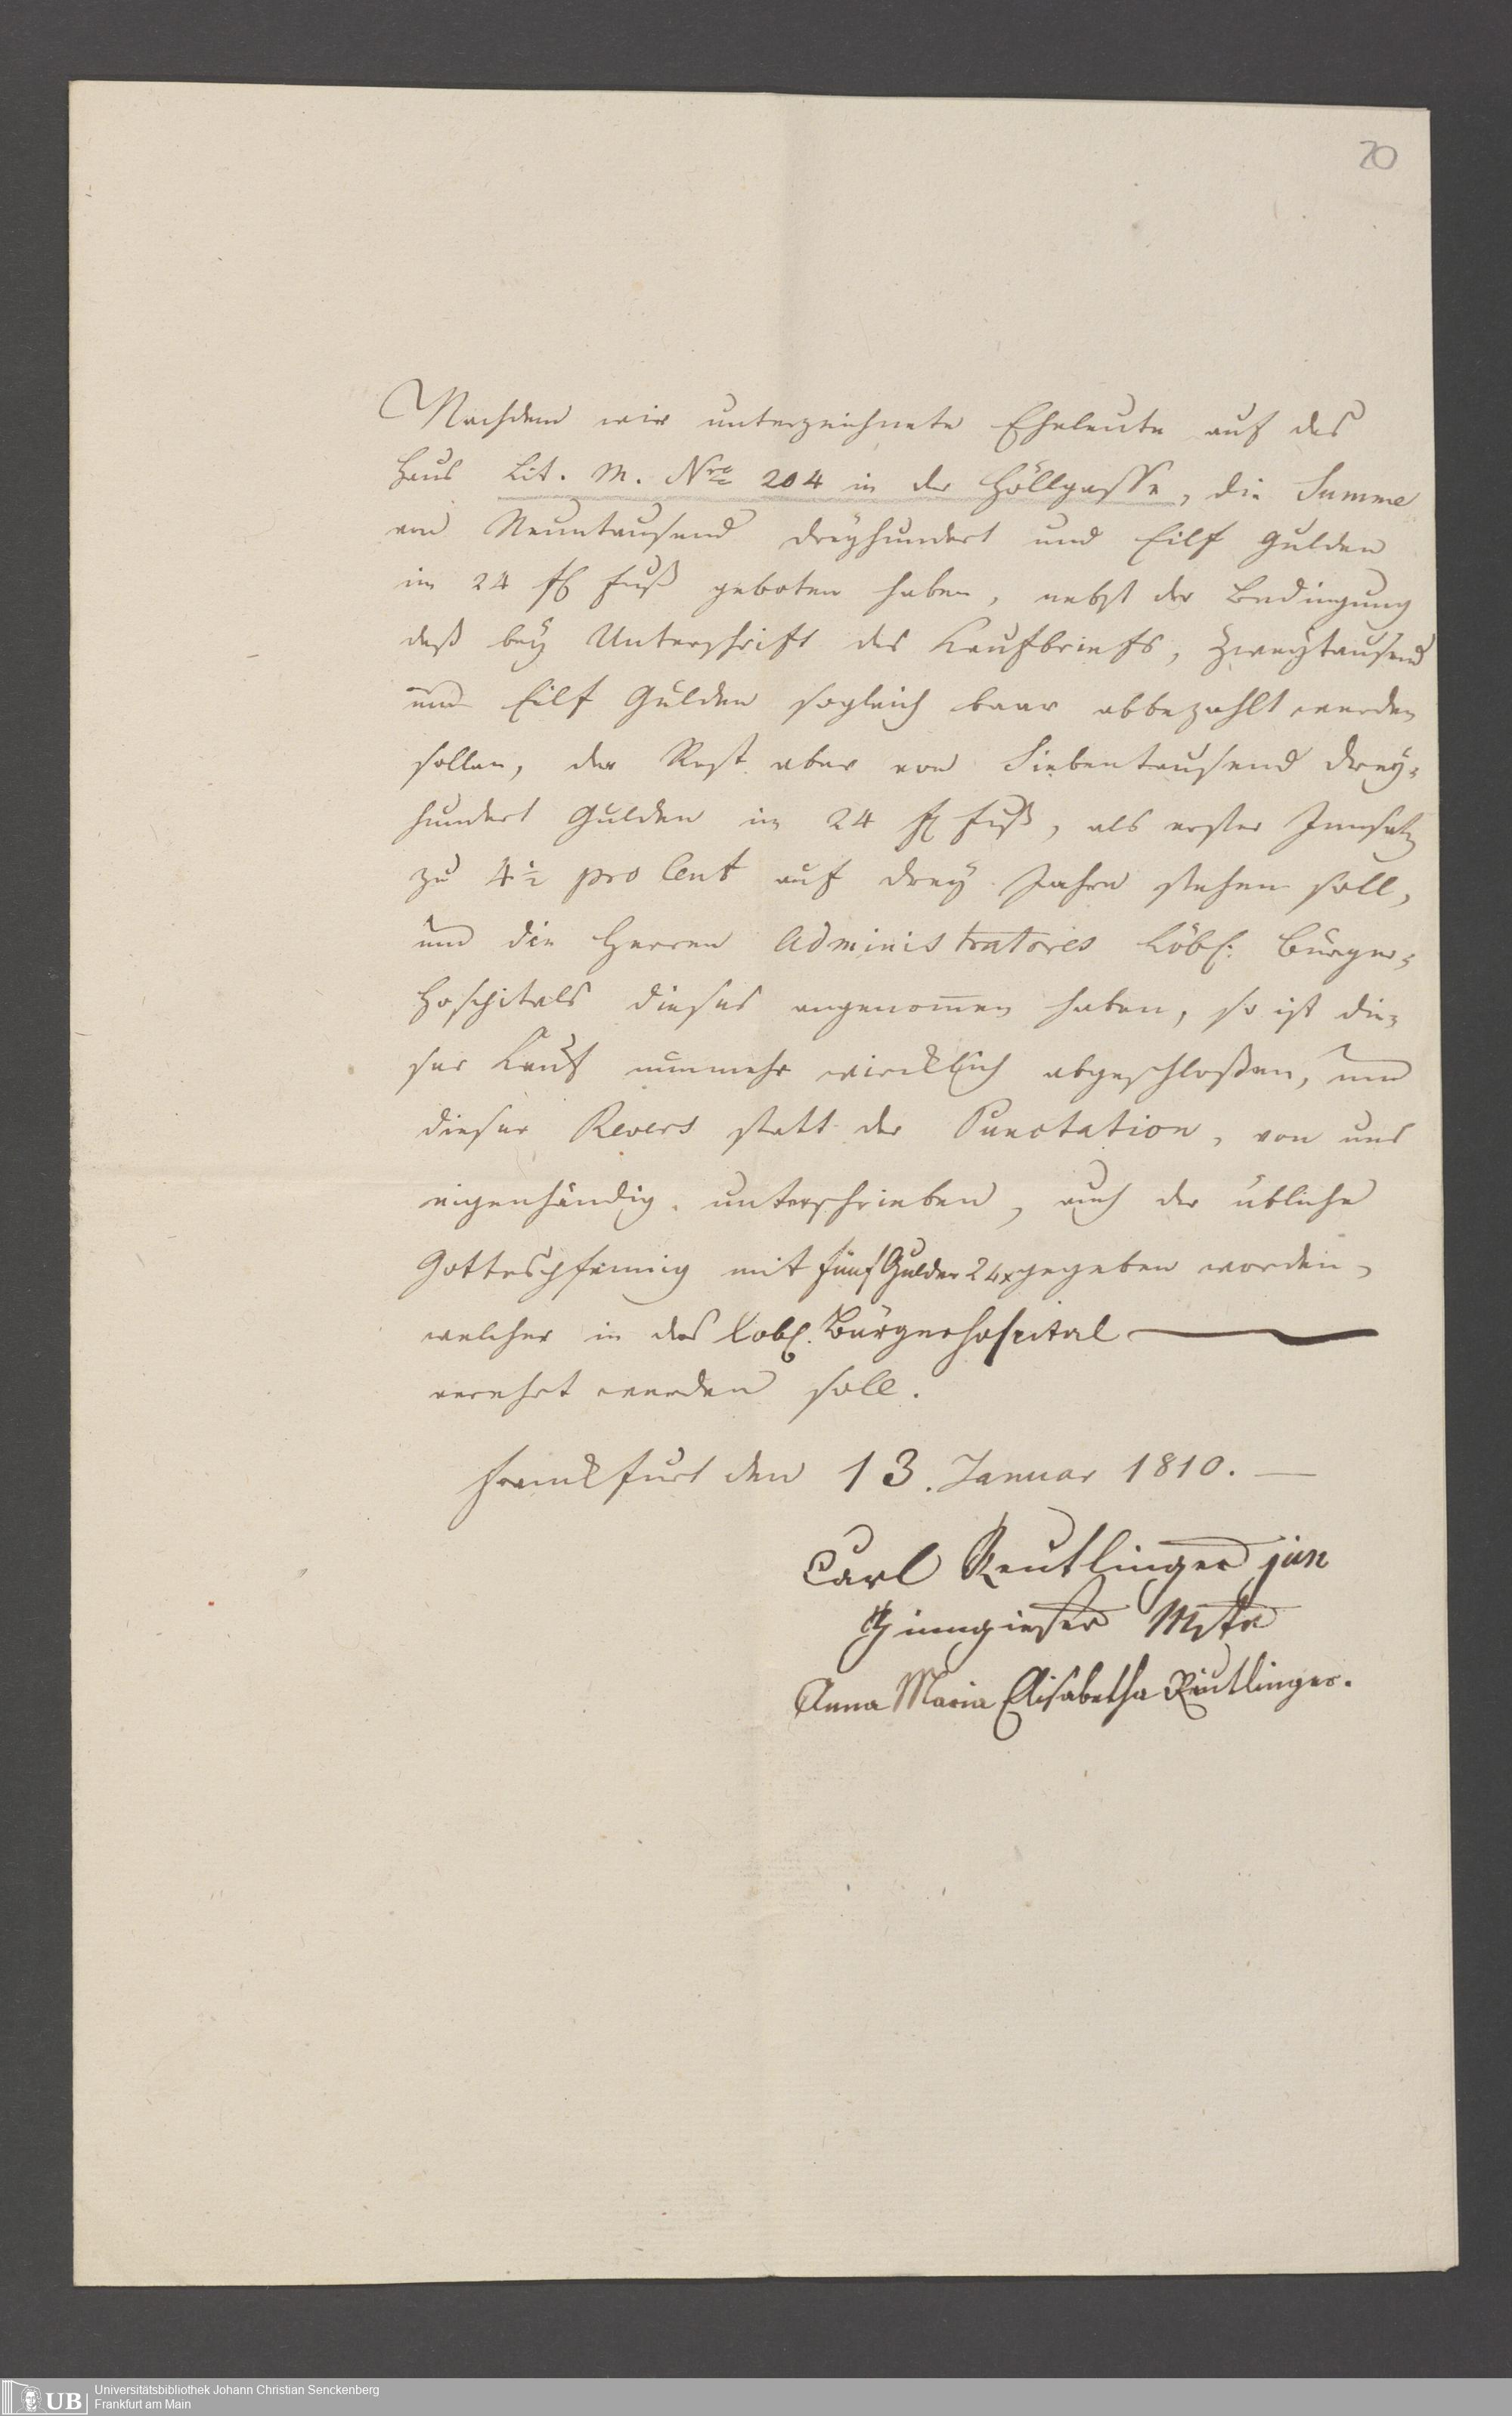 20
Nachdem wir unterzeichnete Eheleute auf das
Haus Lit. M. Nro 204 in der Höllgasse, die Summe
von Neuntausend dreyhundert und Eilf Gulden
im 24 fl Fuß geboten haben, nebst der Bedingung
daß bey Unterschrift des Kaufbriefs, Zweytausend
und Eilf Gulden sogleich baar abbezahlt werden
sollen, der Rest aber von Siebentausend drey-
hundert Gulden im 24 fl Fuß, als erster Innsatz
zu 4½ pro Cent auf drey Jahre stehen soll,
und die Herren Administratores Löbl: Bürger-
Hospitals dieses angenom̄en haben, so ist die-
ser Kauf nunmehr wircklich abgeschloßen, und
dieser Revers statt der Punctation, von uns
eigenhändig unterschrieben, auch der übliche
Gottespfennig mit fünf Gulden 24x gegeben worden,
welcher in das Löbl. Bürgerhospital
verehrt werden soll.
Frankfurt den 13. Januar 1810.
Carl Reutlinger jun
Zinngieser Mstr
Anna Maria Elisabetha Reutlinger.
UB
Universitätsbibliothek Johann Christian Senckenberg
Frankfurt am Main